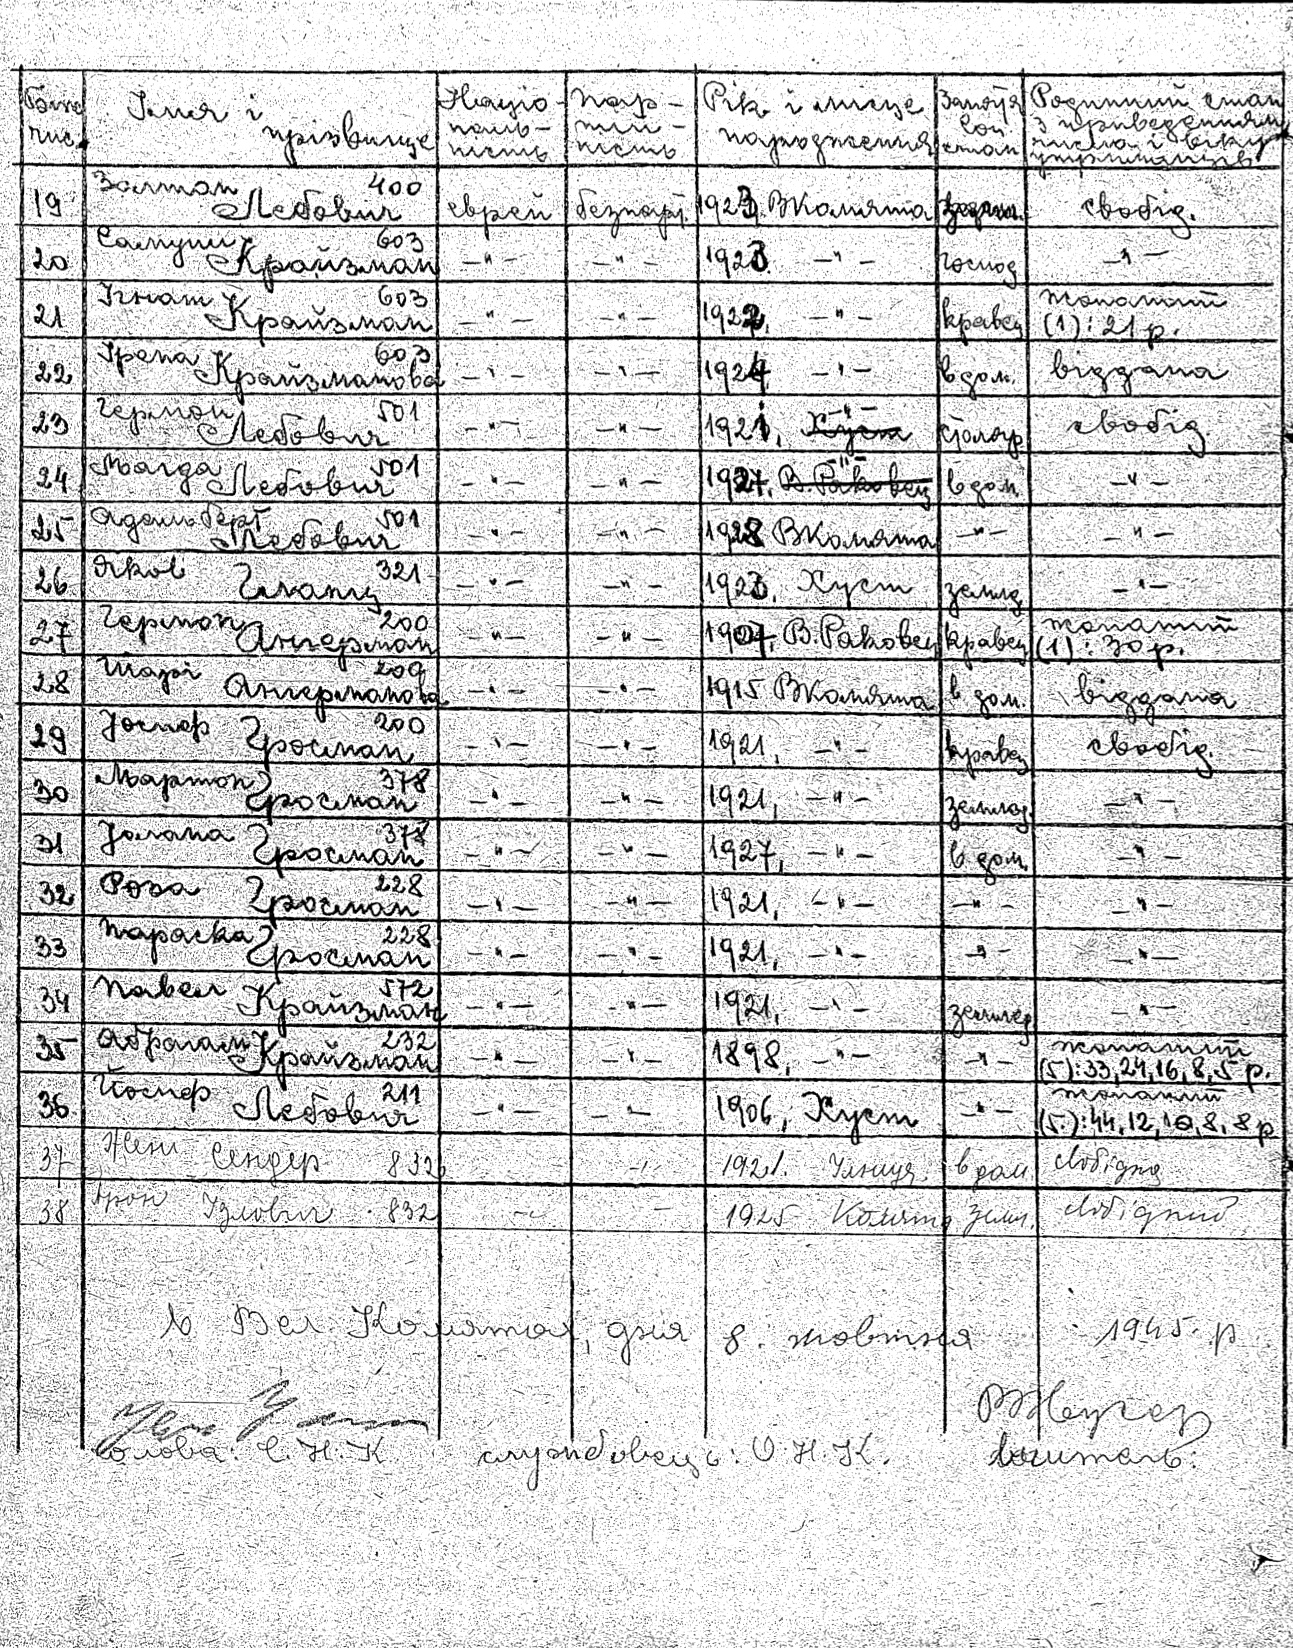 Імня і прізвище
Націо-наль-ність
пар-тій-ність
Рік і місце народження
Родинний стан з приведенням числа і віку
19 Залман Лебович 400 еврей безпарт. 1923. ВКомята свобід.
20 Самуил Крайзман 603 -"- -"- 1923 -"- господ -"-
21 Ігнат Крайзман 603 -"- -"- 1922. -"- кравец жонатий (1): 21 р.
22 Ірена Крайзманова 603 -"- -"- 1924. -"- в дом. віддана
23 Герман Лебович 501 -"- -"- 1921, -"- Хуст столяр свобід.
24 Магда Лебович 501 -"- -"- 1927. -"- В. Раковец в дом. -"-
25 Адальберт Лебович 501 -"- -"- 1928 ВКомята -"- -"-
26 Яков 321 -"- -"- 1923. Хуст землед -"-
27 Герман Ангерман 200 -"- -"- 1907. В. Раковец кравец жонатий (1): 30 р.
28 Шарі Ангерманова 200 -"- -"- 1915 ВКомята в дом. віддана
29 Йосиф Гросман 200 -"- -"- 1921, -"- кравец свобід.
30 Мартон Гросман 378 -"- -"- 1921, -"- землед. -"-
31 Йолана Гросман 378 -"- -"- 1927, -"- в дом. -"-
32 Роза Гросман 228 -"- -"- 1921, -"- -"- -"-
33 Параска Гросман 228 -"- -"- 1921, -"- -"- -"-
34 Павел Крайзман 572 -"- -"- 1921, -"- землед -"-
35 Абрагам Крайзман 232 -"- -"- 1898, -"- -"- жонатий (5): 33, 24, 16, 8, 5 р.
36 Йосиф Лебович 211 -"- -"- 1906, Хуст -"- жонатий (5.): 44, 12, 10, 8, 8 р
37 Сендер 832 -"- 1921. в дом свобідна
38 Арон Ізлович 832 - - 1925 Комята земл. свобідний
в Вел. Комятах, дня 8. жовтня 1945. р
голова: С. Н. К службовець: О. Н. К.